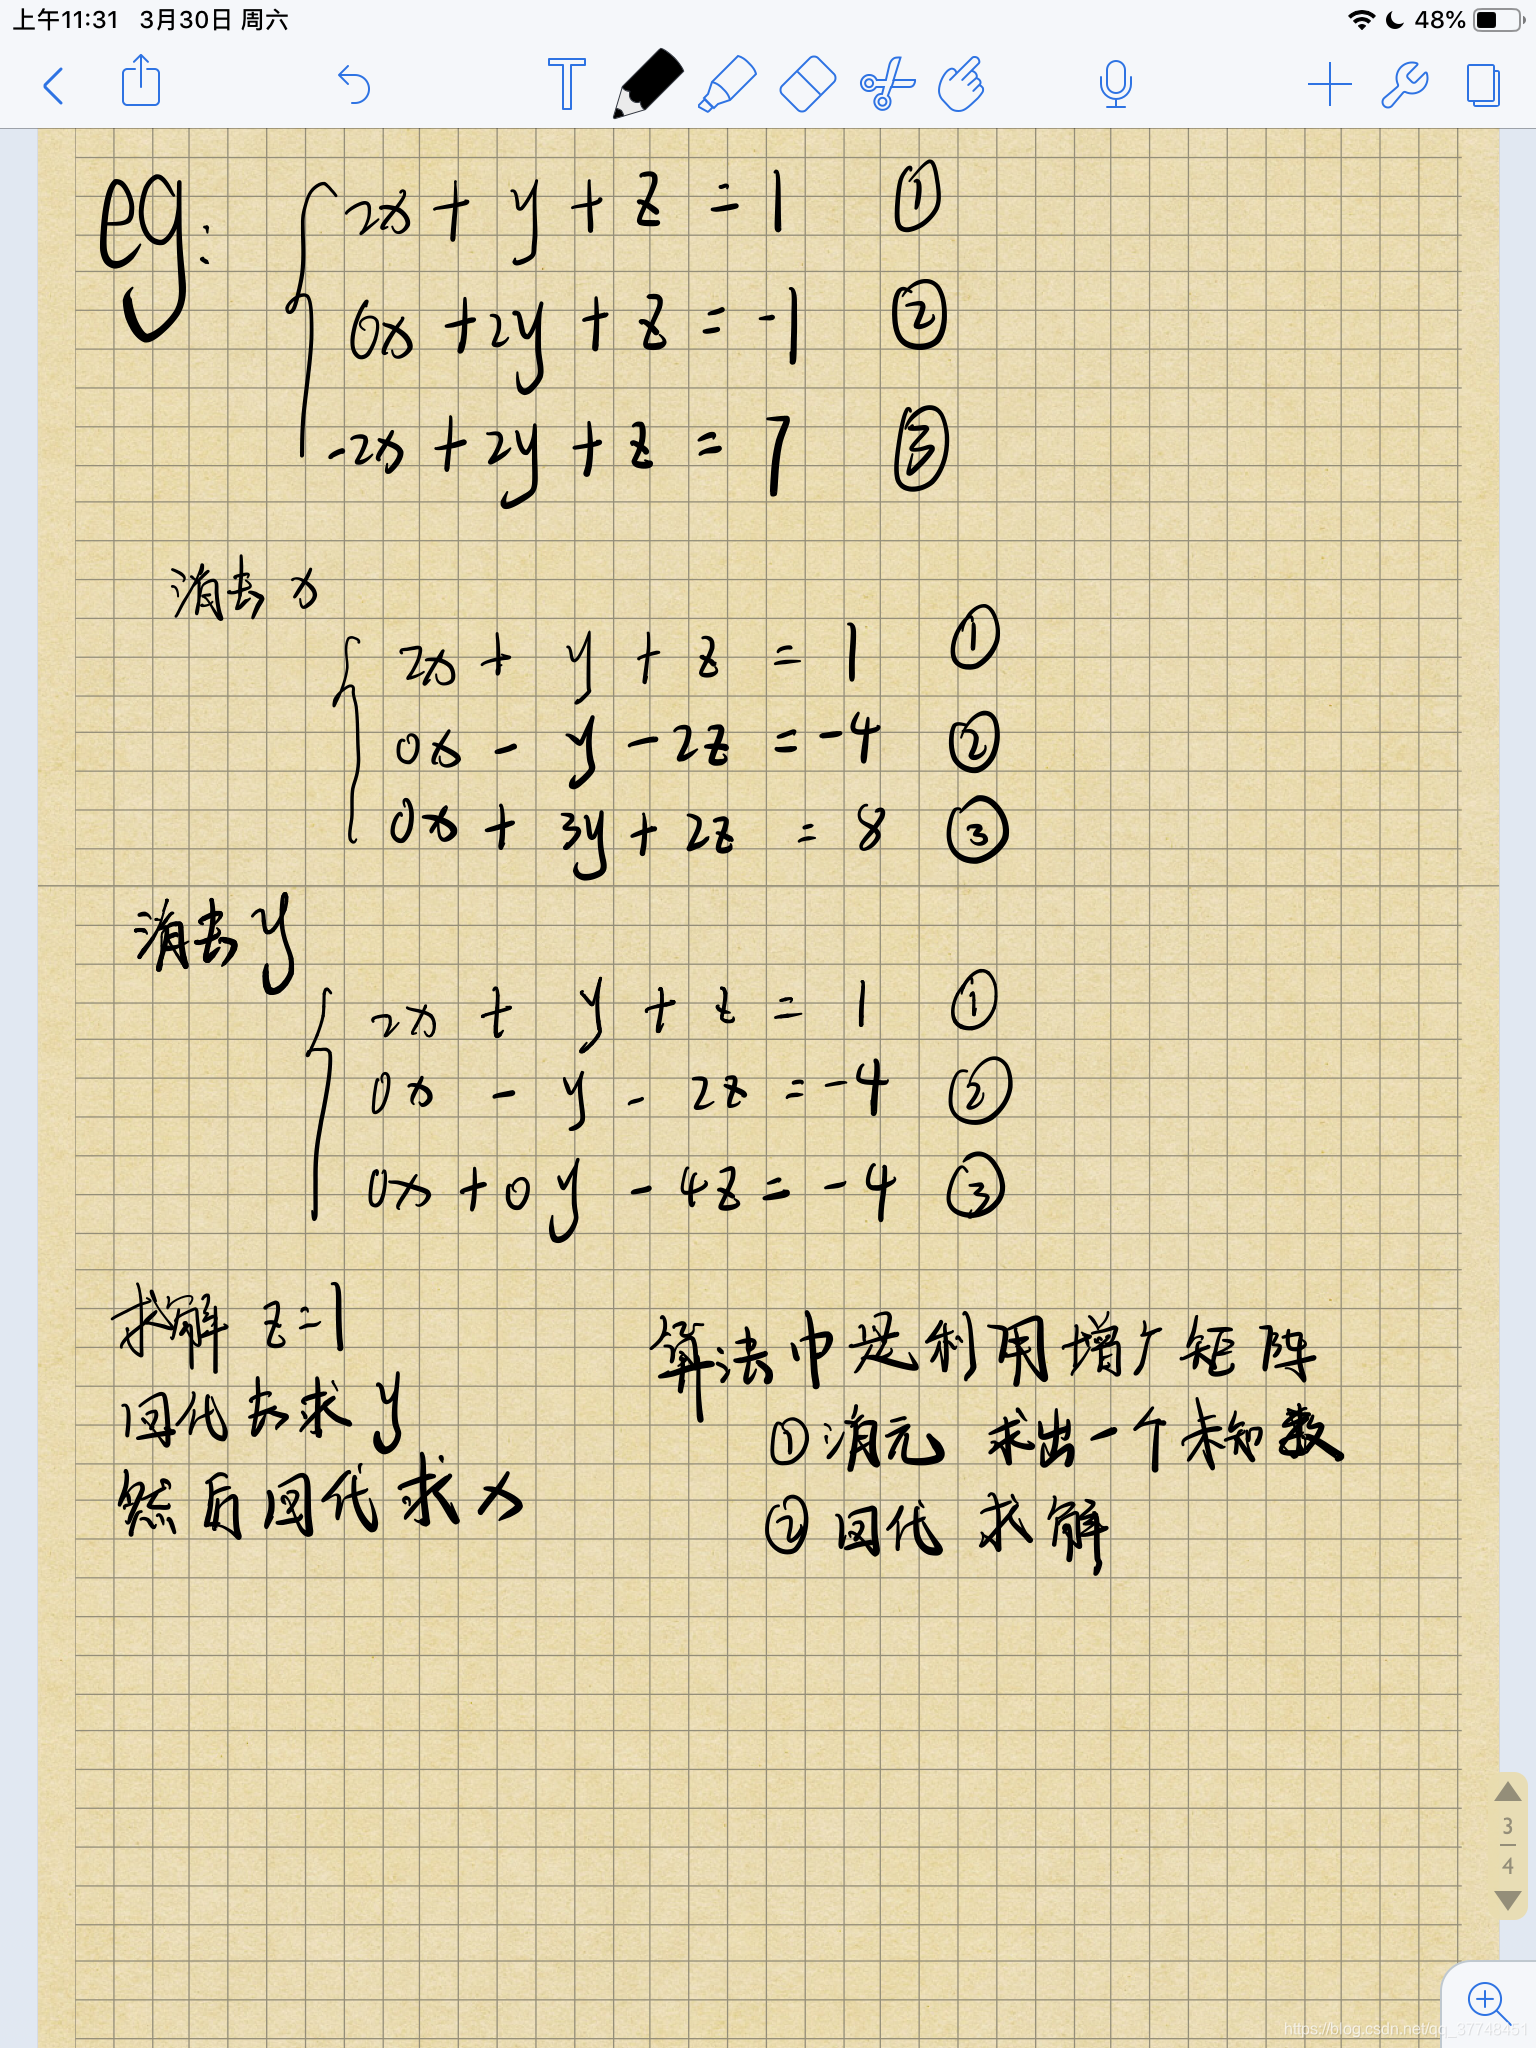 上午11:31 3月30日 周六 48%
eg:
2x + y + z = 1 ①
0x + 2y + z = -1 ②
-2x + 2y + z = 7 ③
消去 x
2x + y + z = 1 ①
0x - y - 2z = -4 ②
0x + 3y + 2z = 8 ③
消去 y
2x + y + z = 1 ①
0x - y - 2z = -4 ②
0x + 0y - 4z = -4 ③
求解 z=1
回代去求 y
然后回代求 x
算法中是利用增广矩阵
①消元 求出一个未知数
②回代 求解
3
4
https://blog.csdn.net/qq_37748451